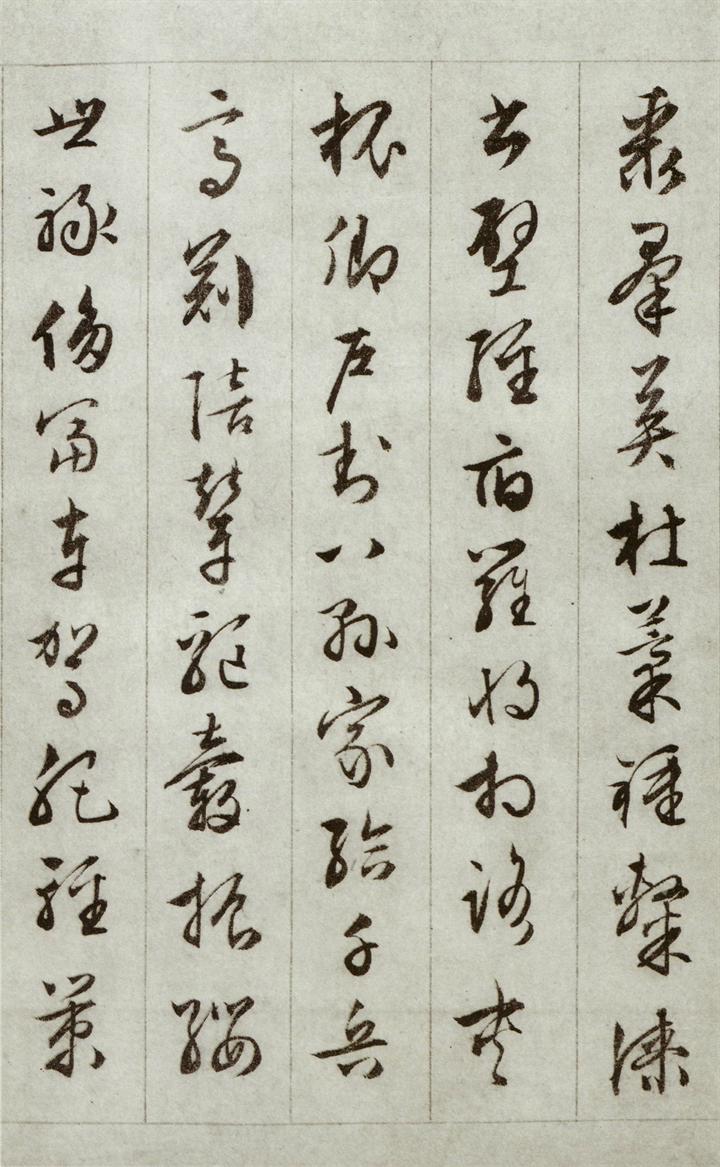 聚群英杜稾鍾隸漆
書壁經府羅將相路俠
槐卿戶封八縣家給千兵
高冠陪輦驅轂振纓
世祿侈富車駕肥輕策